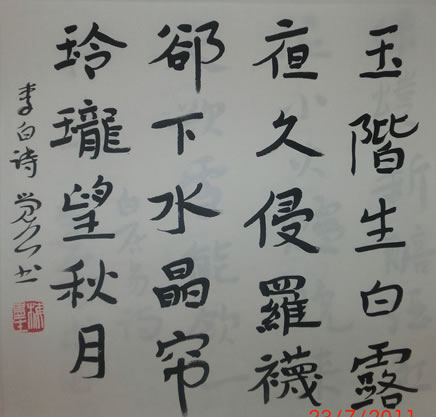 玉階生白露
夜久侵羅襪
郤下水晶帘
玲瓏望秋月
李白诗
书
23/7/2011